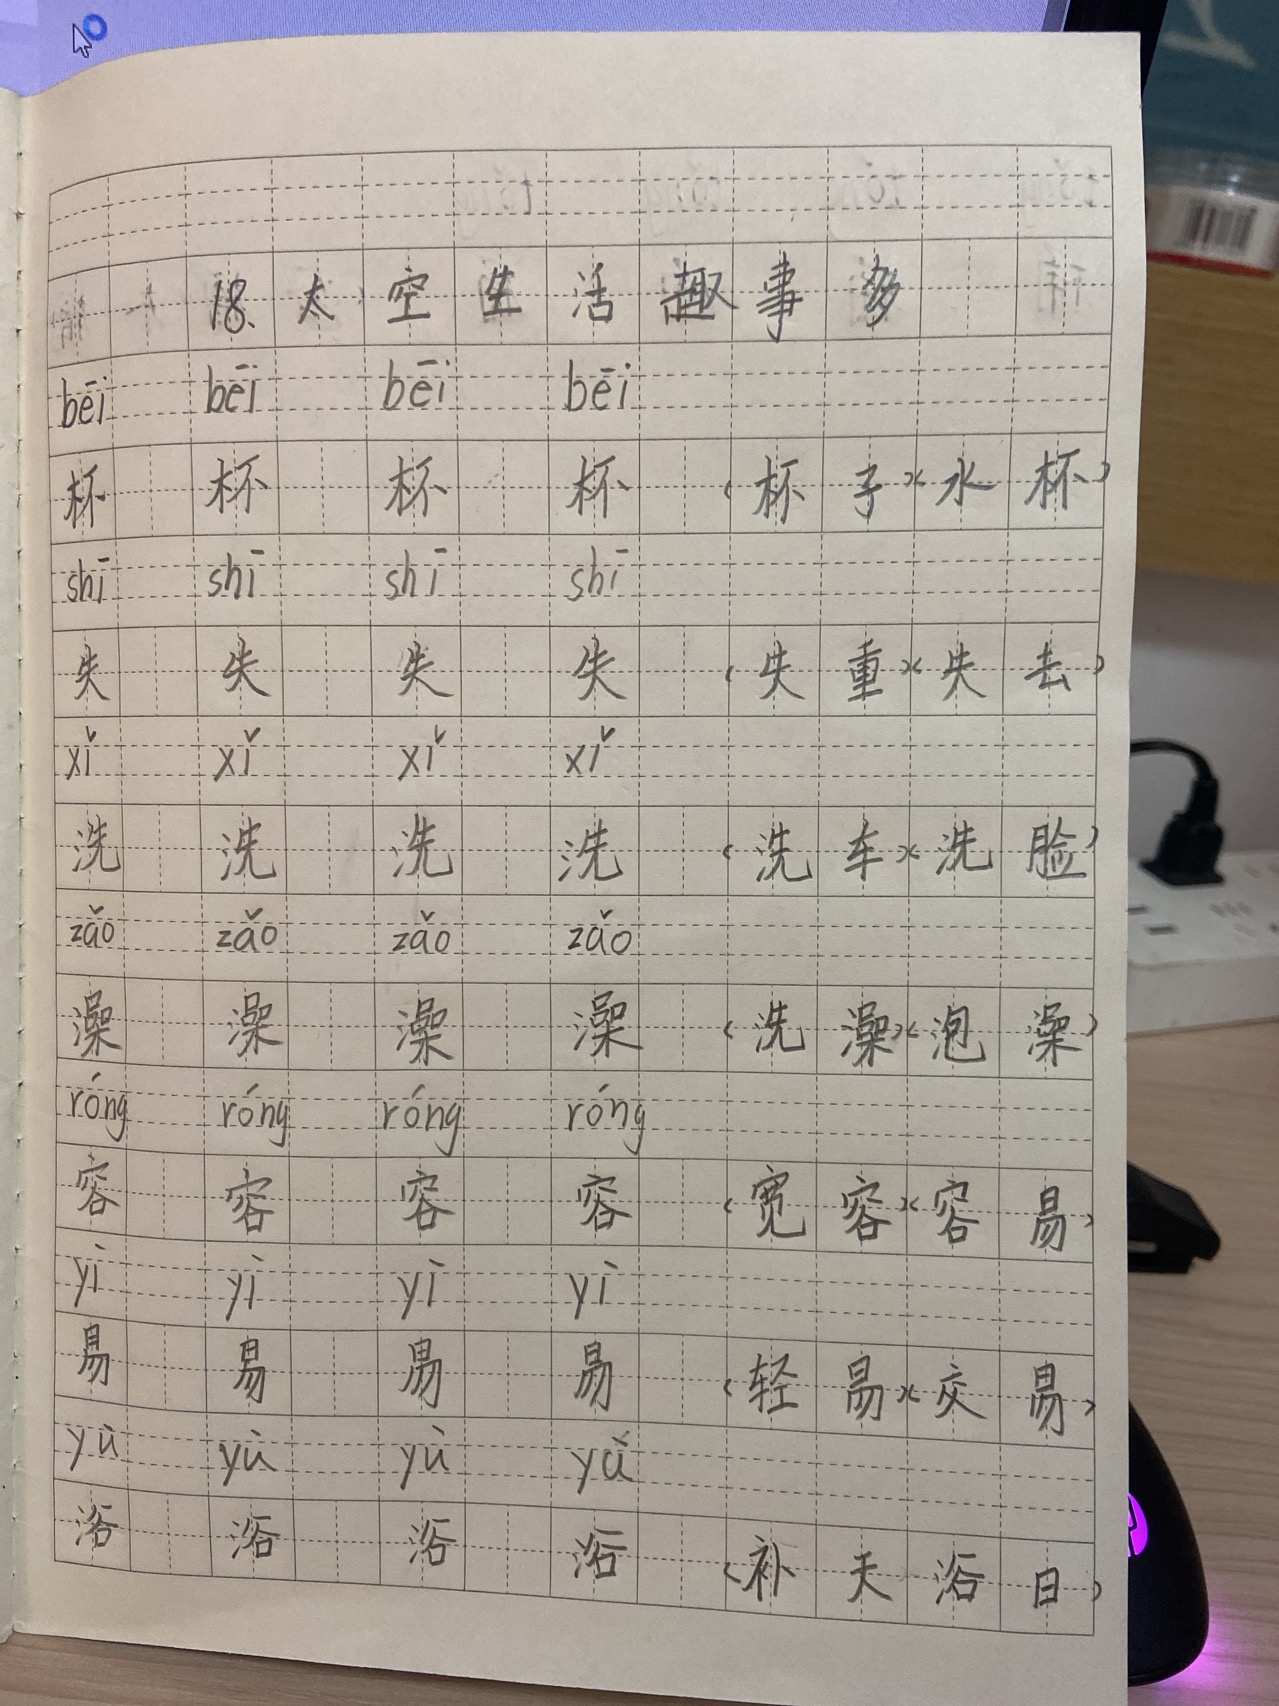 18.太空生活趣事多
bēi bēi bēi bēi
杯 杯 杯 杯 (杯子)(水杯)
shī shī shī shī
失 失 失 失 (失重)(失去)
xǐ xǐ xǐ xǐ
洗 洗 洗 洗 (洗车)(洗脸)
zǎo zǎo zǎo zǎo
澡 澡 澡 澡 (洗澡)(泡澡)
róng róng róng róng
容 容 容 容 (宽容)(容易)
yì yì yì yì
易 易 易 易 (轻易)(交易)
yù yù yù yù
浴 浴 浴 浴 (补天浴日)